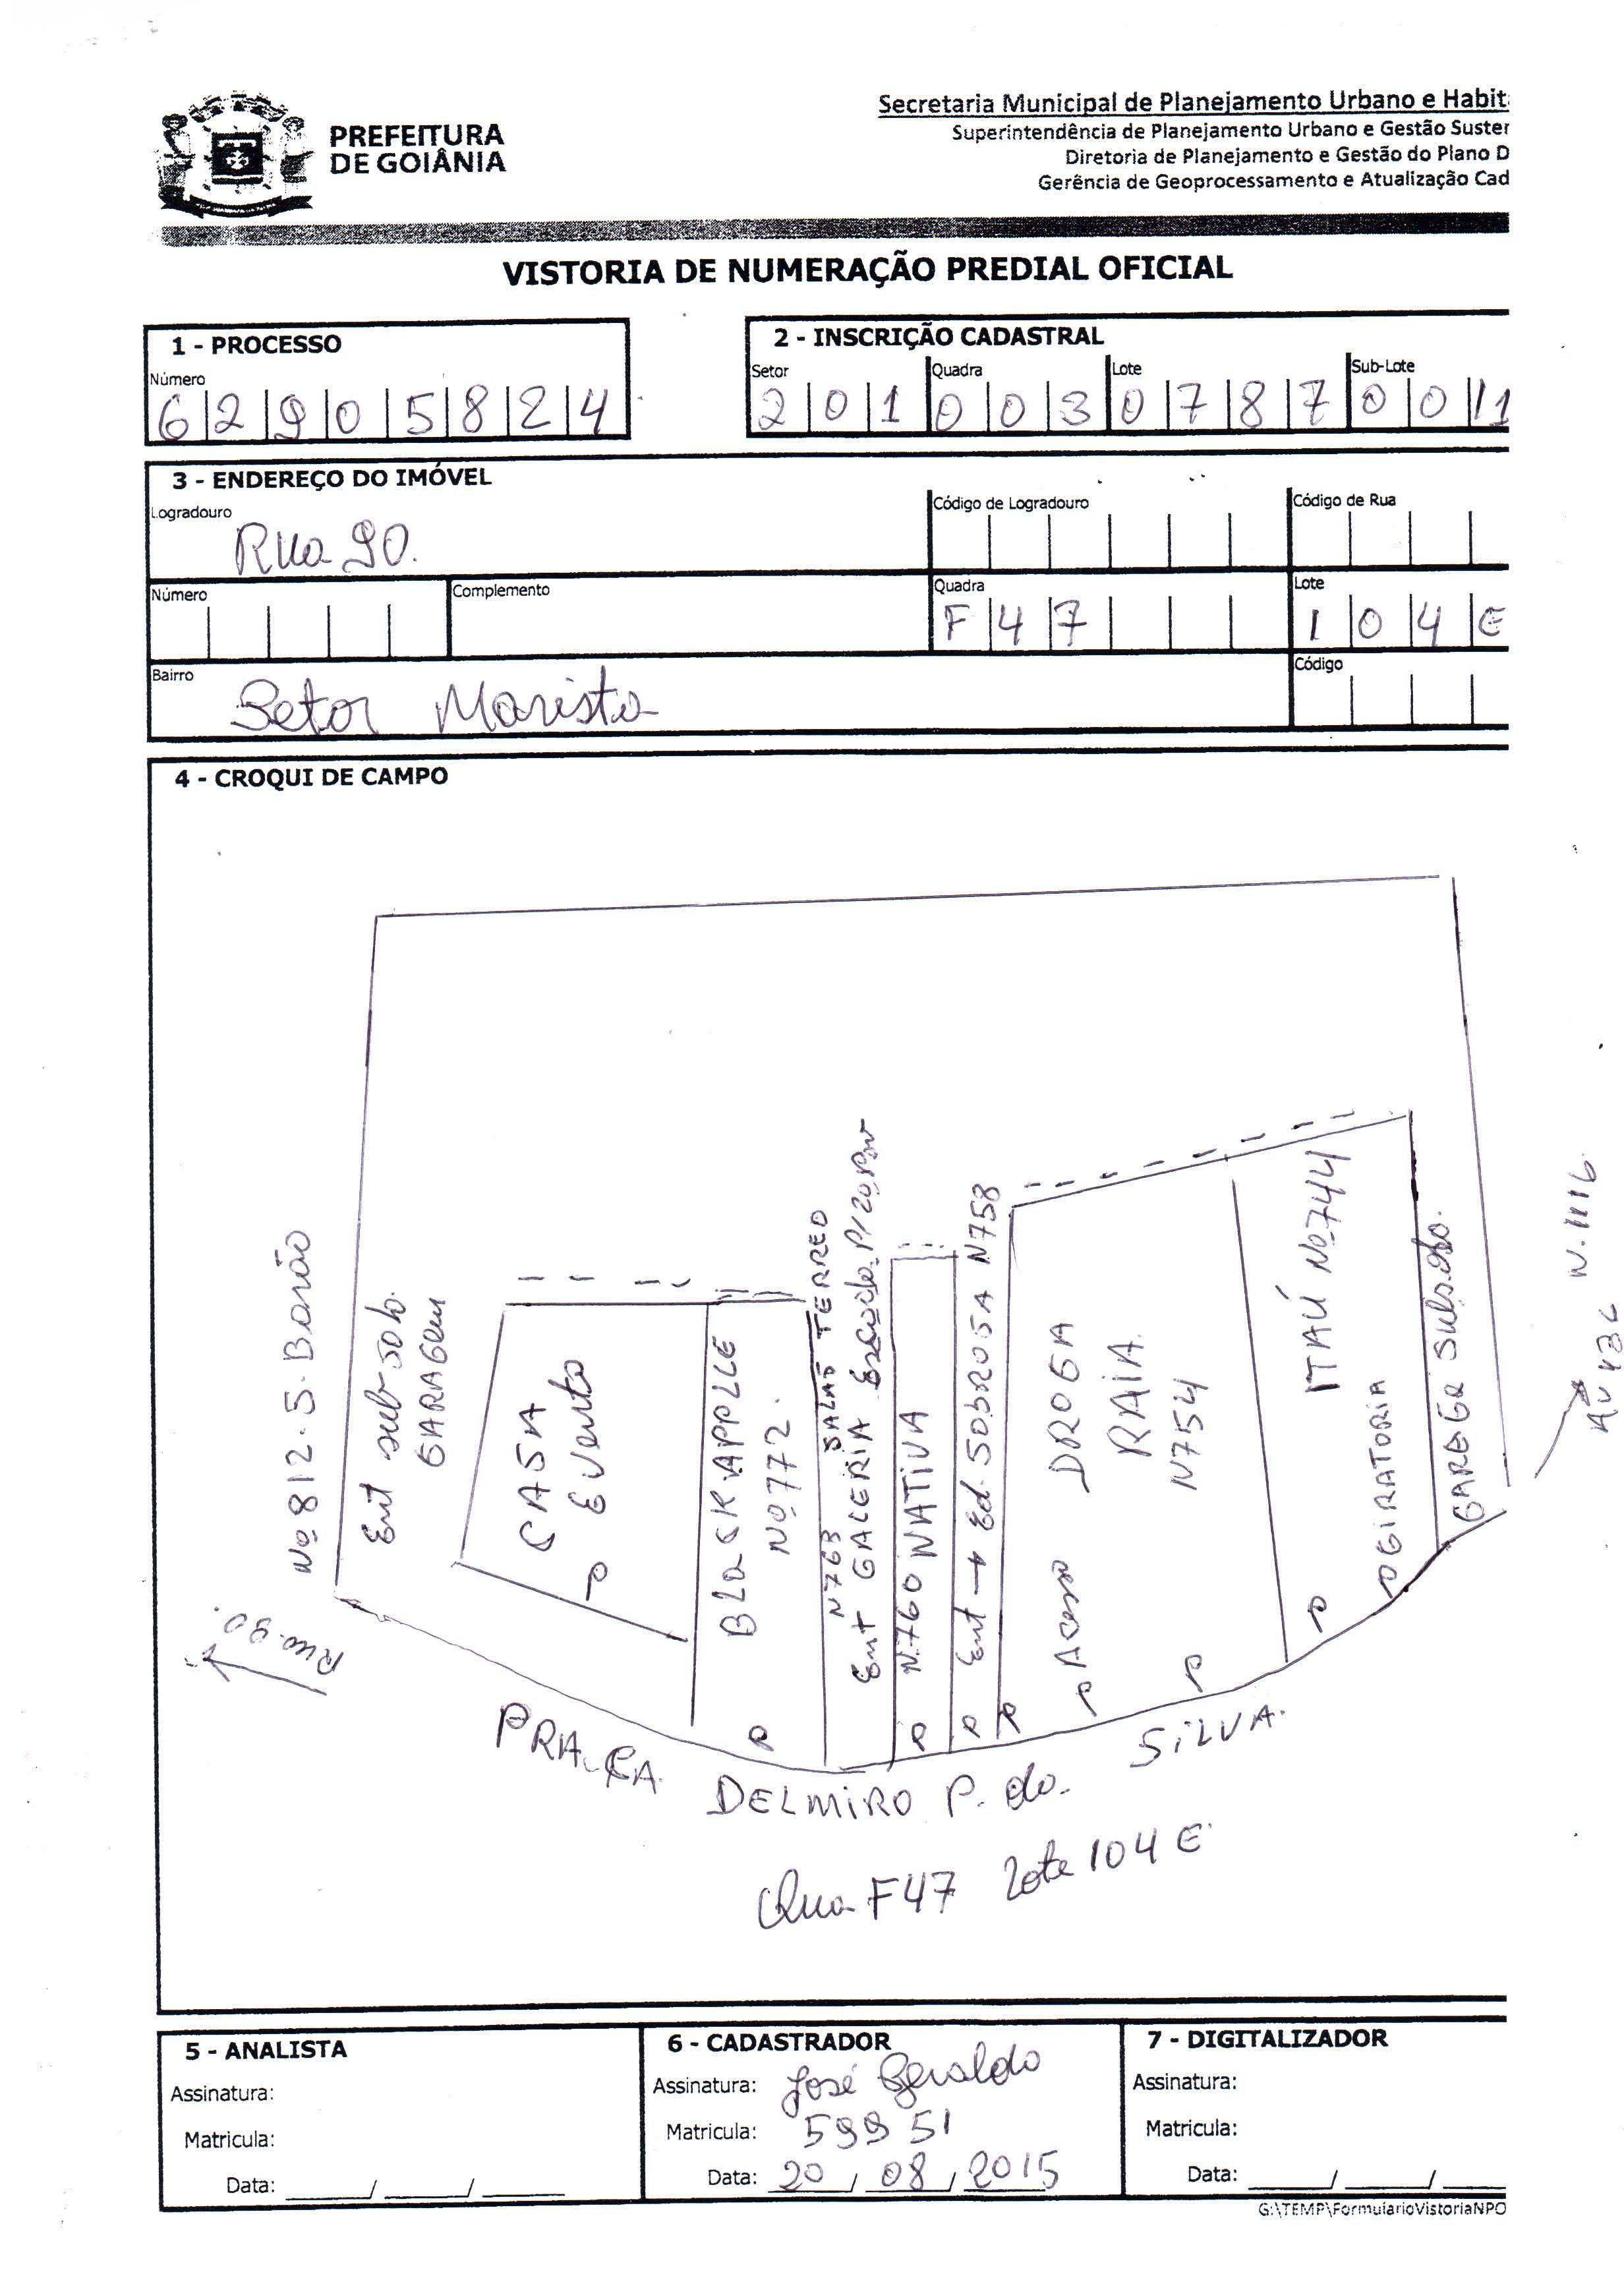 PREFEITURA
DE GOIÂNIA
Secretaria Municipal de Planejamento Urbano e Habit
Superintendência de Planejamento Urbano e Gestão Suster
Diretoria de Planejamento e Gestão do Plano D
Gerência de Geoprocessamento e Atualização Cad
VISTORIA DE NUMERAÇÃO PREDIAL OFICIAL
1 - PROCESSO
Número
62905824
2 - INSCRIÇÃO CADASTRAL
Setor Quadra Lote Sub-Lote
201 003 0787 0011
3 - ENDEREÇO DO IMÓVEL
Logradouro
Rua 90.
Código de Logradouro
Código de Rua
Número
Complemento
Quadra
F47
Lote
104E
Bairro
Setor Marista
Código
4 - CROQUI DE CAMPO
Nº 812. S. Barão
Ent sub-solo.
GARAGem
CASA
Evento
BLacKAPPLLE
Nº772.
N763 SALAO TERREO
Ent GALERIA Escada P/
N.760 NATIVA
Ent → Ed. SOBROSA N758
Acesso DROGA
RAIA
N754
ITAÚ Nº744
GIRATORIA
Subsolo.
Av 136 N. 1116
Rua. 90.
PRAÇA DELMIRO P. da. SiLVA.
Qua F47 lote 104 E
5 - ANALISTA
Assinatura:
Matricula:
Data: ___/___/___
6 - CADASTRADOR
Assinatura: José Geraldo
Matricula: 599 51
Data: 20/08/2015
7 - DIGITALIZADOR
Assinatura:
Matricula:
Data: ___/___/___
G:\TEMP\FormularioVistoriaNPO